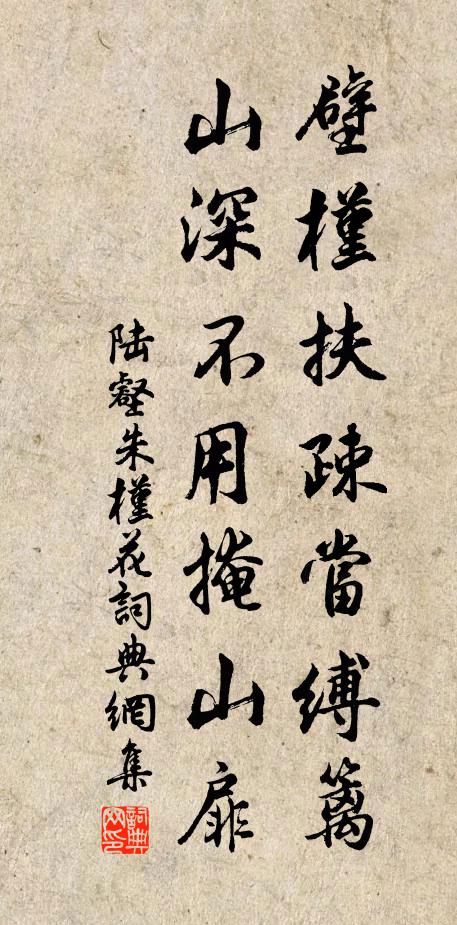 壁槿扶疎當縛籬
山深不用掩山扉
陆壑朱槿花詞典網集
詞典网印